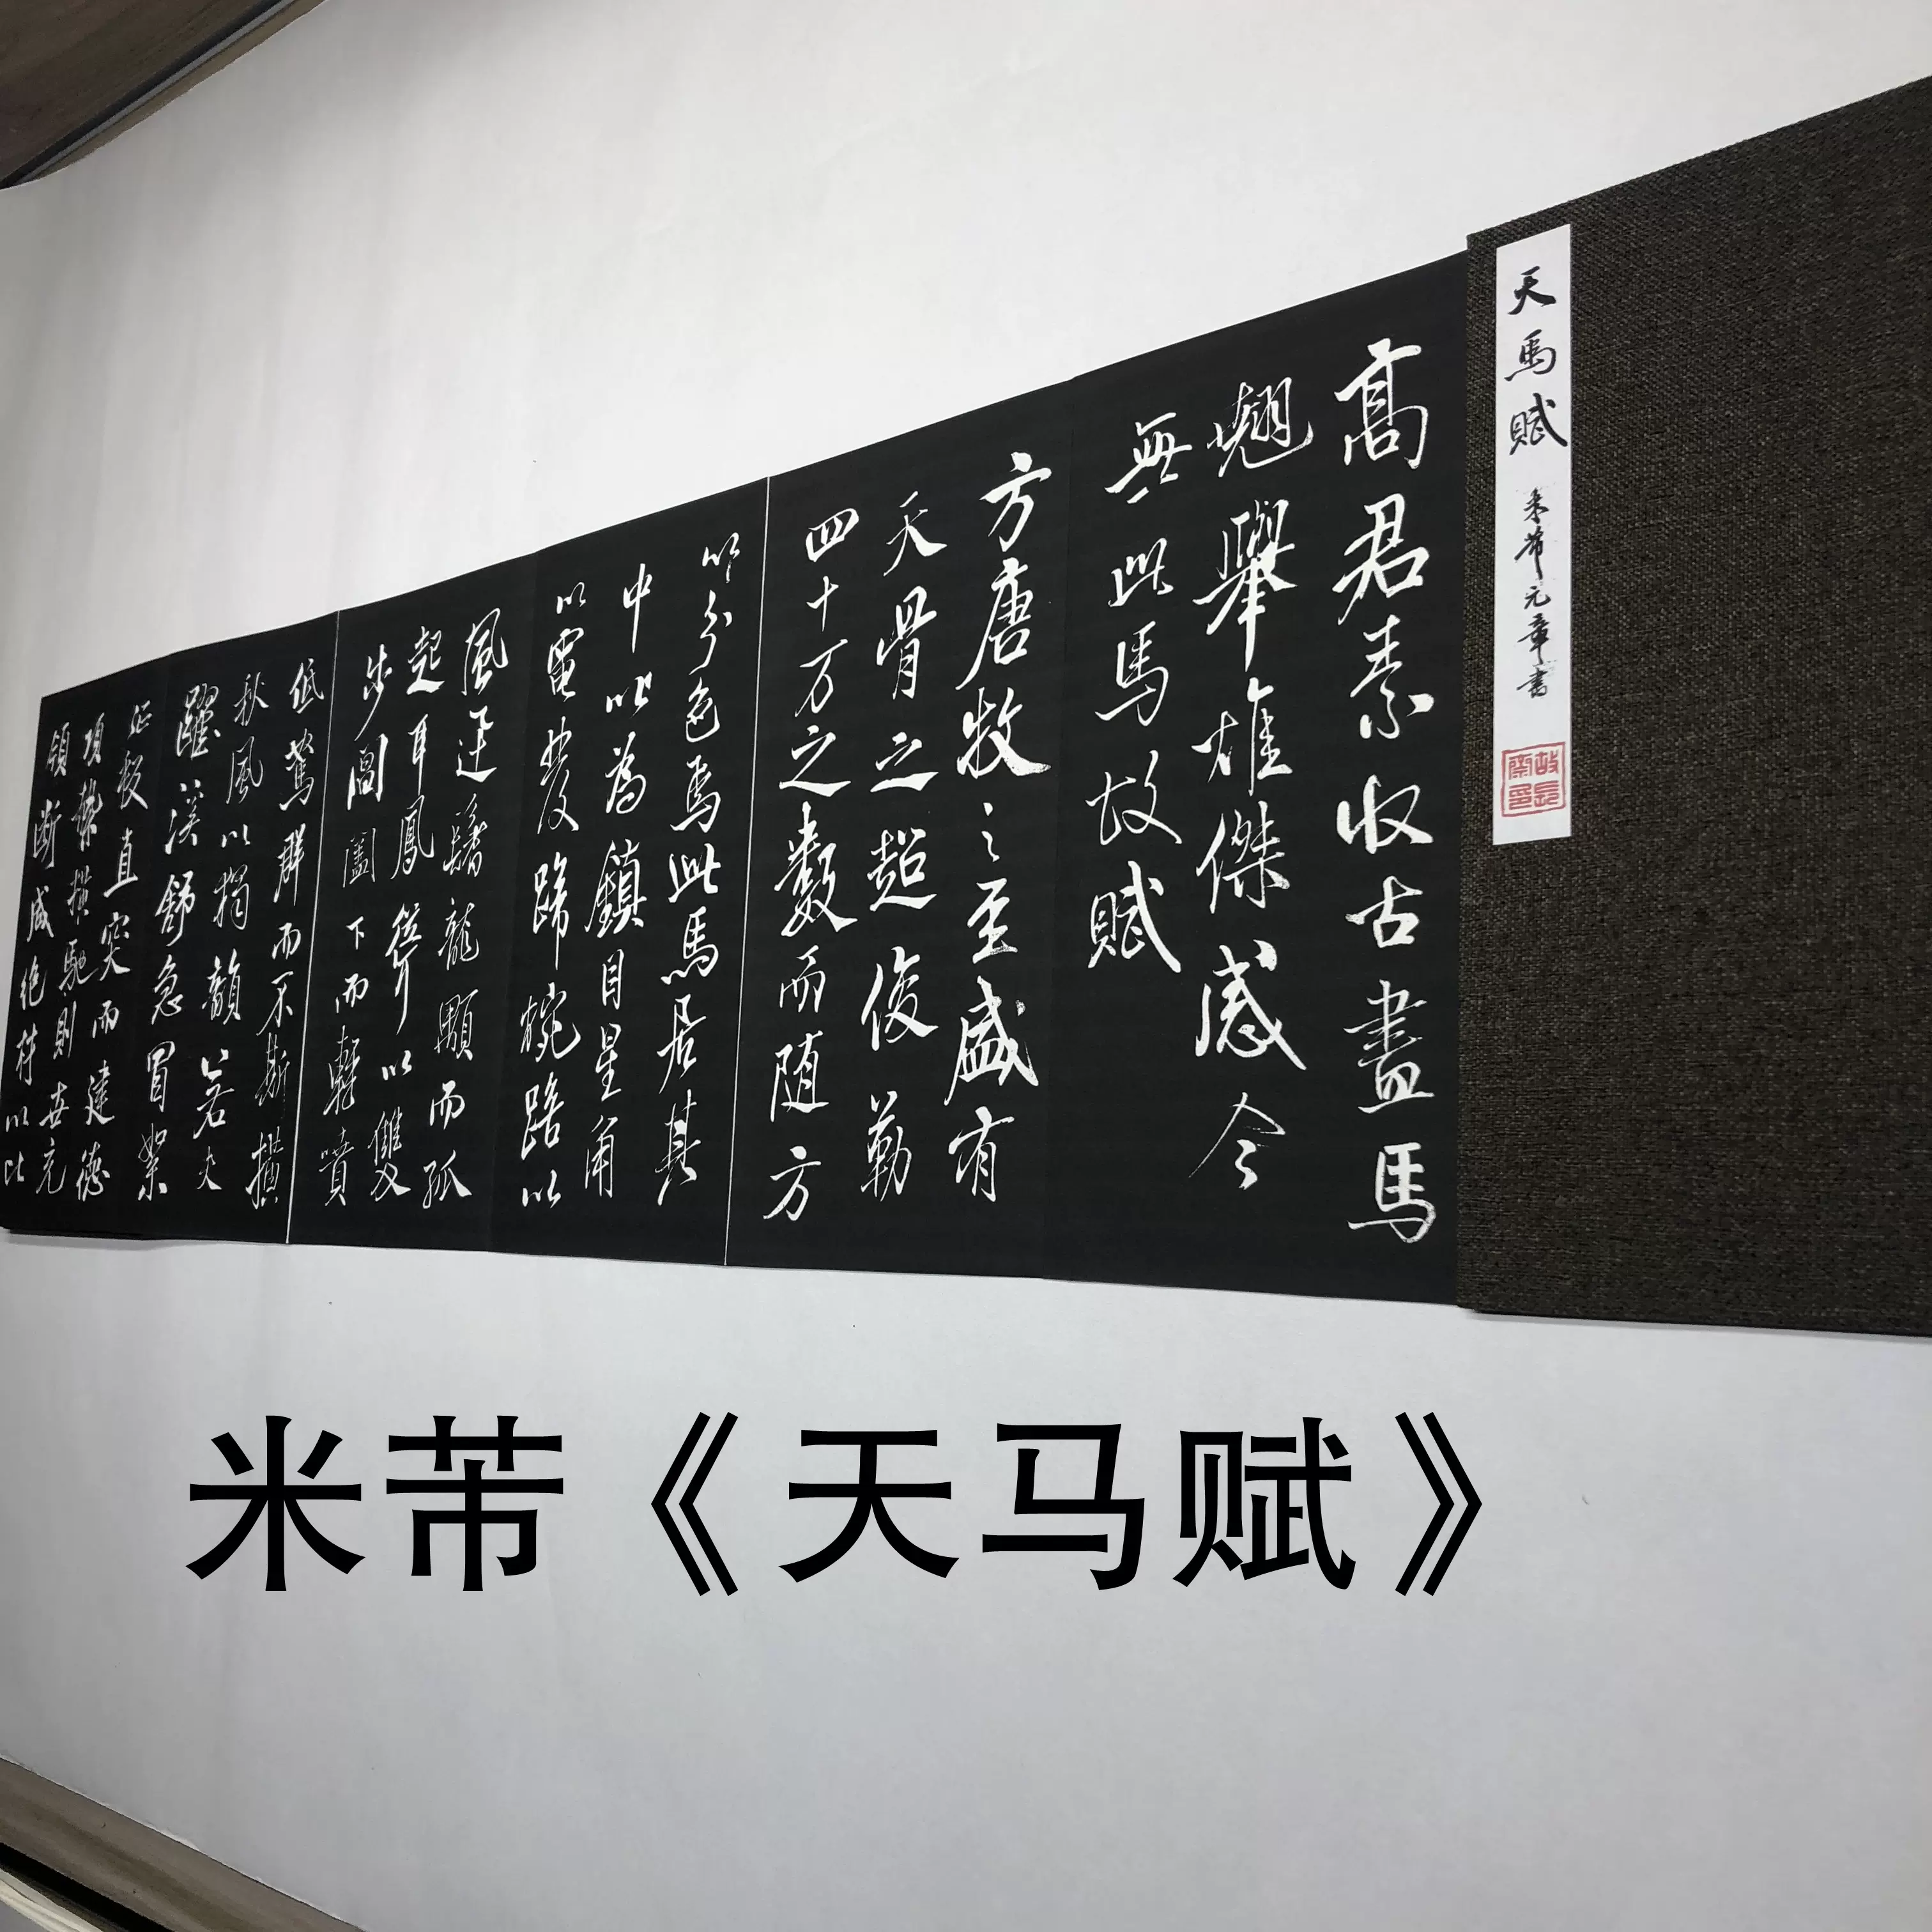 天馬賦 米芾元章書
高君素收古畫馬
翹舉雄傑感今
無此馬故賦
方唐牧之至盛有
天骨之超俊勒
四十万之數而随方
以分色焉此馬居其
中以為鎮目星角
以電發蹄椀踣以
風迅鬐龍顒而孤
起耳鳳聳以雙
步閶闔下而輕噴
低駑群而不嘶橫
秋風以獨韻若夫
躍溪舒急冒絮
征叛直突而建德
項縶橫馳則世充
領断咸绝材以比
米芾《天马赋》